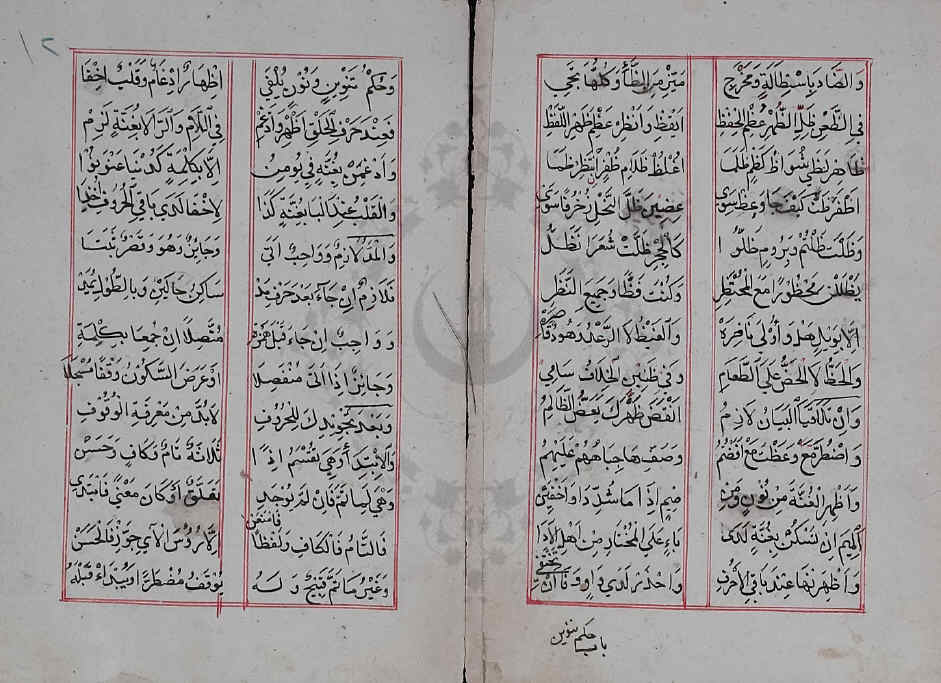 والضاد باستطالة ومخرج ميز من الظاء وكلها تجي
في الظعن ظل الظهر عظم الحفظ ايقظ وانظر عظم ظهر اللفظ
ظاهر لظى شواظ كظم ظلما اغلظ ظلام ظفر انتظر ظما
اظفر ظنا كيف جا وعظ سوى عضين ظل النحل زخرفا سوى
وظلت ظلتم وبروم ظلوا كالحجر ظلت شعرا نظل
يظللن محظورا مع المحتظر وكنت فظا وجميع النظر
الا بويل هل واولى ناضره والغيظ لا الرعد وهود قاصره
والحظ لا الحض على الطعام وفي ظنين الخلاف سامي
وان تلاقيا البيان لازم انقض ظهرك يعض الظالم
واضطر مع وعظت مع افضتم وصف ها جباههم عليهم
واظهر الغنة من نون ومن ميم اذا ما شددا واخفين
الميم ان تسكن بغنة لدى باء على المختار من اهل الادا
واظهرنها عند باقي الاحرف واحذر لدى واو وفا ان تختفي
باب حكم تنوين
١٢
وحكم تنوين ونون يلفي اظهار ادغام وقلب اخفا
فعند حرف الحلق اظهر وادغم في اللام والرا لا بغنة لزم
وادغمن بغنة في يومن الا بكلمة كدنيا عنونوا
والقلب عند البا بغنة كذا لاخفا لدى باقي الحروف اخذا
والمد لازم وواجب اتى وجائز وهو وقصر ثبتا
فلازم ان جاء بعد حرف مد ساكن حالين وبالطول يمد
وواجب ان جاء قبل همزة متصلا ان جمعا بكلمة
وجائز اذا اتى منفصلا او عرض السكون وقفا مسجلا
وبعد تجويدك للحروف لا بد من معرفة الوقوف
والابتدا وهي تقسم اذا ثلاثة تام وكاف وحسن
وهي لما تم فان لم يوجد تعلق او كان معنى فابتدي
فالتام فالكافي ولفظا فامنعن الا رؤس الاي جوز فالحسن
وغير ما تم قبيح وله يوقف مضطرا ويبدا قبله